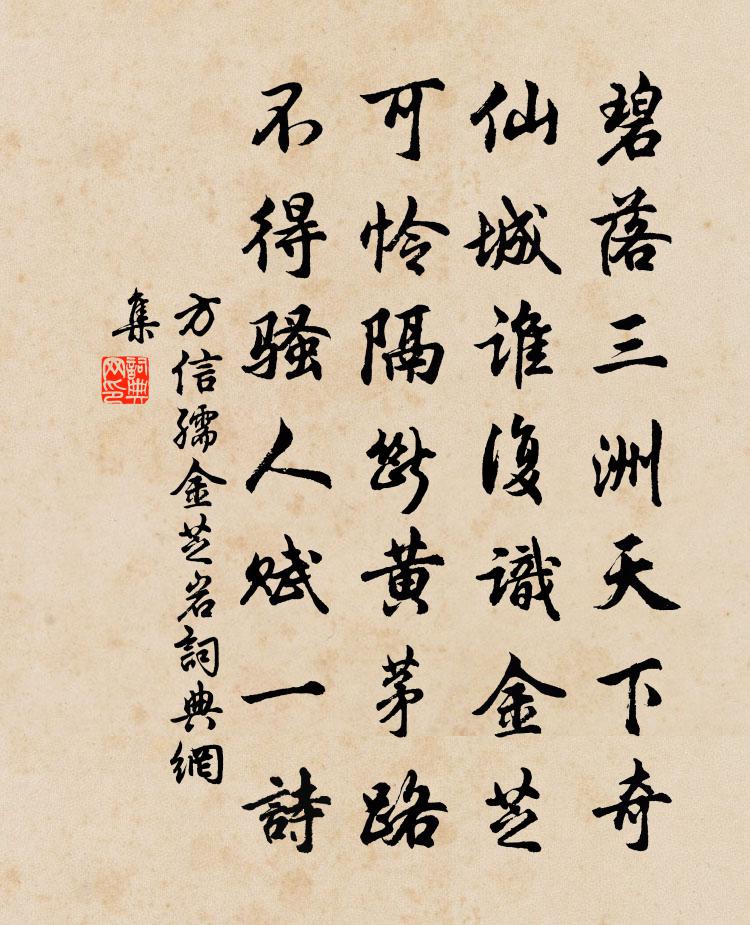 碧落三洲天下奇
仙城谁復識金芝
可怜隔斷黄茅路
不得骚人赋一詩
方信孺金芝岩詞典網
集
詞典
网印